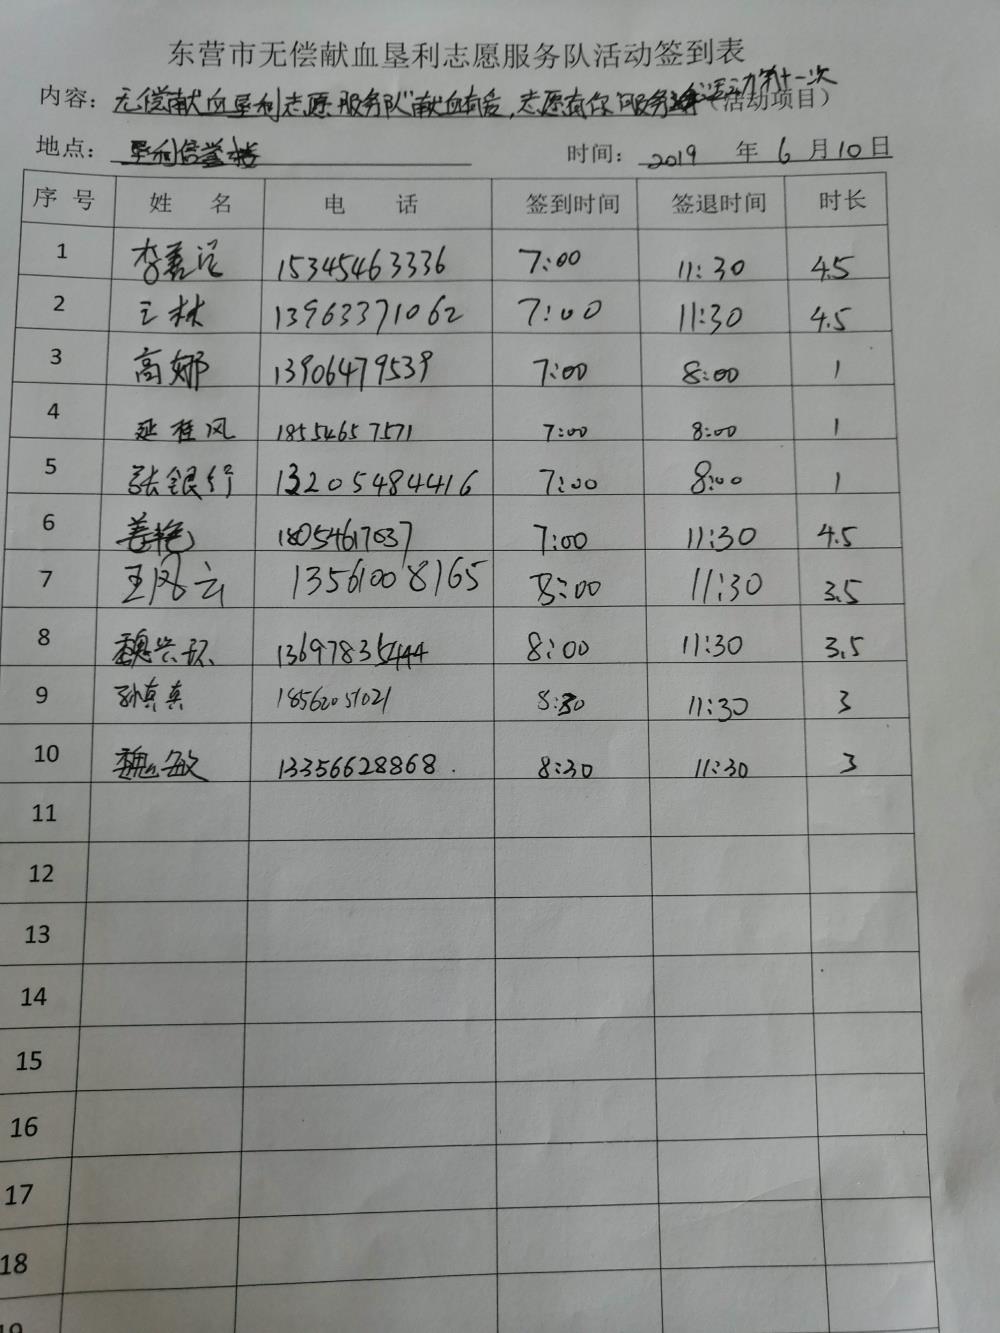 东营市无偿献血垦利志愿服务队活动签到表
内容：无偿献血垦利志愿服务队"献血有爱，志愿有你"服务 活动第十一次（活动项目）
地点：垦利信誉楼 时间：2019 年 6 月 10 日
序 号 姓 名 电 话 签到时间 签退时间 时长
1 李 15345463336 7:00 11:30 4.5
2 王林 13963371062 7:00 11:30 4.5
3 高娜 13906479539 7:00 8:00 1
4 延桂风 18554657571 7:00 8:00 1
5 张银行 13205484416 7:00 8:00 1
6 姜艳 18054617037 7:00 11:30 4.5
7 王风云 13561008165 8:00 11:30 3.5
8 魏兴环 8:00 11:30 3.5
9 孙真真 18562051021 8:30 11:30 3
10 魏敏 13356628868. 8:30 11:30 3
11
12
13
14
15
16
17
18
19